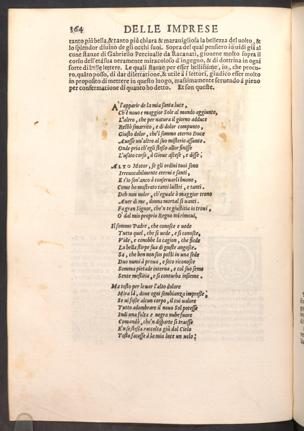 164 DELLE IMPRESE
tanto più bella, & tanto più chiara & marauigliosa la bellezza del uolto, &
lo splendor diuino de gli occhi suoi. Sopra del qual pensiero io uidi già al
cune stanze di Gabriello Percivalle da Racanati, giouene molto sopra il
corso dell'età sua ornato di miracoloso d'ingegno, & di dottrina in ogni
sorte di belle lettere. Le quali stanze per esser bellissime, io, che procu-
ro, quãto posso, di dar dilettatione, & utile à i lettori, giudico esser molto
in proposito di mettere in questo luogo, massimamente seruendo à pieno
per confermatione di quanto ho detto. Et son queste.
All'apparir de la mia santa luce,
Ch'è nouo e maggior Sole al mondo aggiunto,
L'altro, che per natura il giorno adduce
Restò smarrito, e di dolor compunto,
Giusto dolor, che'l sommo eterno Duce
Hauesse un'altro al suo misterio assunto,
Onde pria ch'egli stesso altro finisse
L'usato corso, à Gioue ascese, e disse;
ALTO Motor, se gli ordini tuoi sono
Irreuocabilmente eterni e santi,
E s'io son'anco à conseruarli buono,
Come ho mostrato tanti lustri, e tanti,
Deh non uoler, ch'eguale ò maggior trono
Haue di me, donna mortal si uanti.
Fa gran Signor, che'n te giustitia io troui,
O dal mio proprio Regno mi rimoui,
Il sommo Padre, che conosce e uede
Tutto quel, che si uede, e si conosce,
Vide, e conobbe la cagion, che siede
La bella stirpe sua di giuste angosce.
Sa, che ben non son posti in una sede
Duo numi à proua, e seco riconosce
Somma pietade interna, e col suo seme
Sente mestitia, e si conturba insieme.
Ma tosto per leuar l'alto dolore
Mira là, doue ogni sembianza impresse,
Se ui fosse alcun corpo, il cui ualore
Tutto adombrare il nouo Sol potesse
Indi una folta e negra nube fuore
Comandò, ch'n disparte si traesse
E'n se stessa raccolta giù dal Cielo
Tosto facesse à la mia luce un uelo;